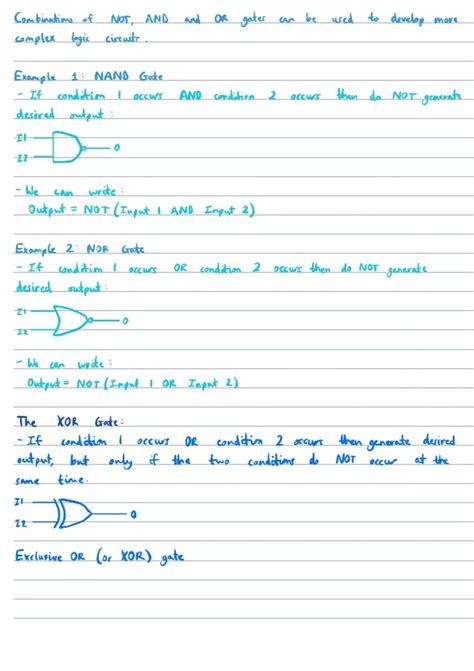 Combinations of NOT, AND and OR gates can be used to develop more
complex logic circuits.
Example 1: NAND Gate
- If condition 1 occurs AND condition 2 occurs then do NOT generate
desired output:
I1
O
I2
- We can write:
Output = NOT (Input 1 AND Input 2)
Example 2: NOR Gate
- If condition 1 occurs OR condition 2 occurs then do NOT generate
desired output:
I1
O
I2
- We can write:
Output = NOT (Input 1 OR Input 2)
The XOR Gate:
- If condition 1 occurs OR condition 2 occurs then generate desired
output, but only if the two conditions do NOT occur at the
same time.
I1
O
I2
Exclusive OR (or XOR) gate